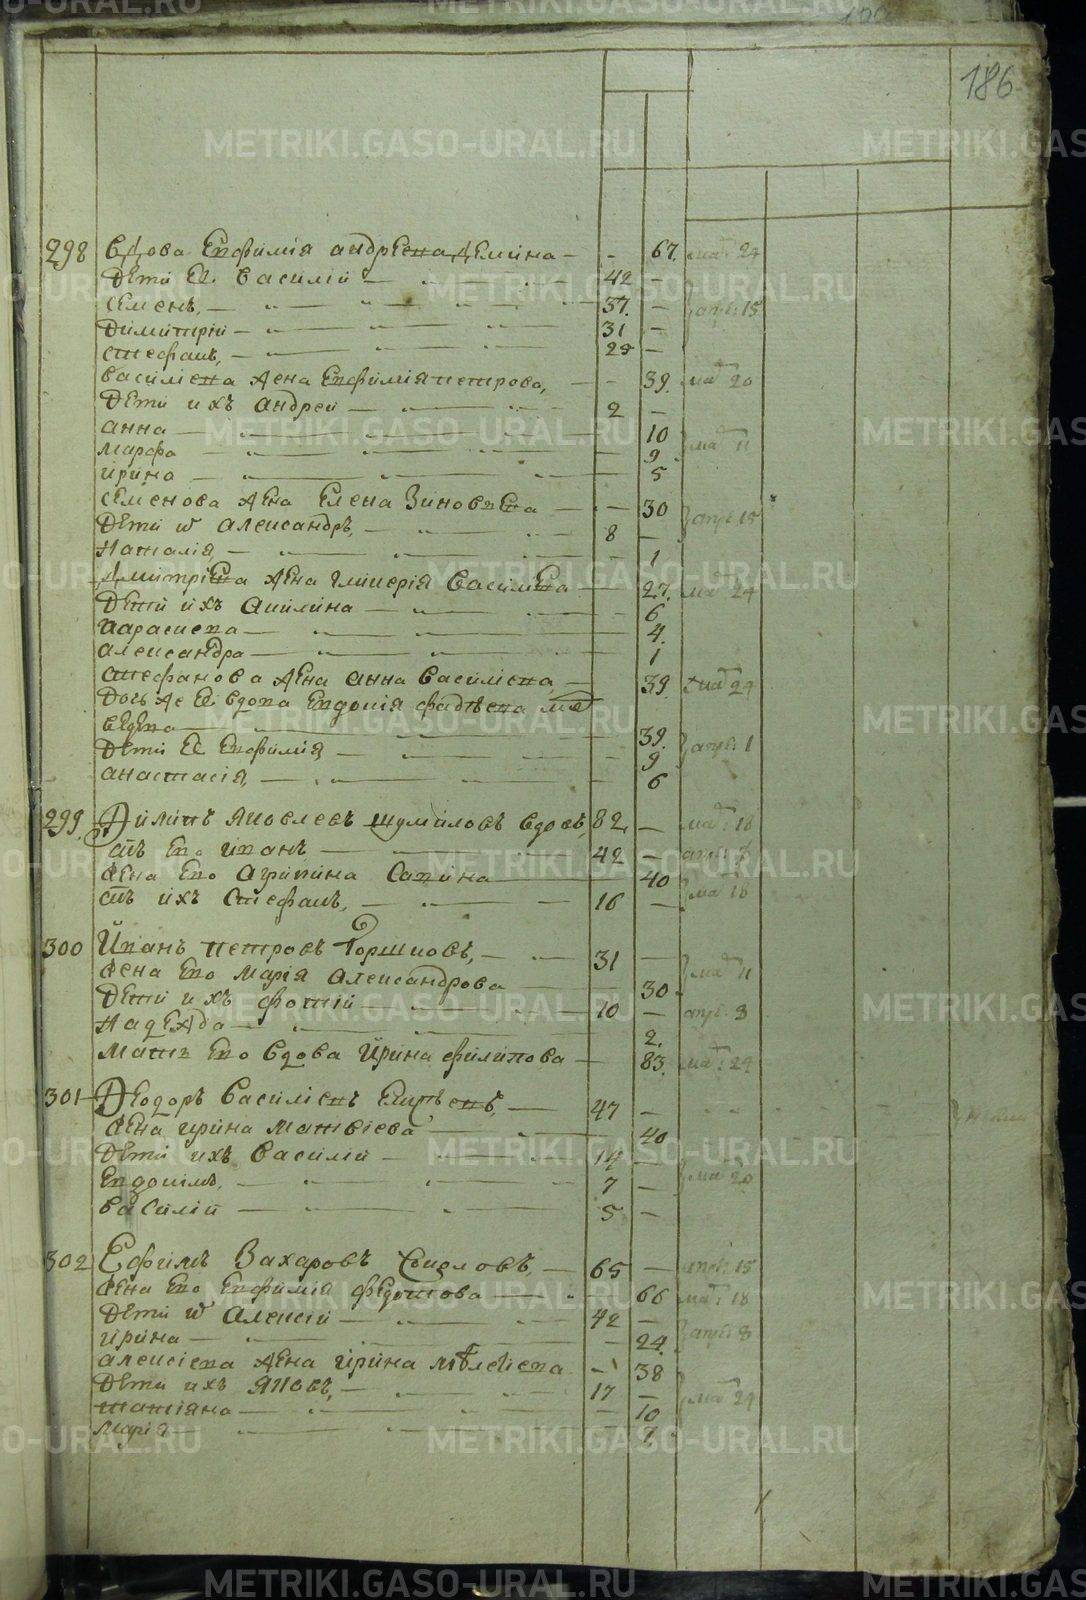 186
298 Вдова Евфимія андреева демина — - 67. мар: 24
Дети Ее Василій — 42
Семенъ, — 37. — апр: 15
Димитрій — 31 —
Стефанъ, — 29 —
Василиева Жена Евфимія петрова, — 39. мар 20
Дети ихъ андреи — 2 —
анна — 10 мар 11
марфа — 9
ирина — 5
Семенова Жена Елена Зиновьева — 30 апр: 15
Дети их александръ, — 8 —
Наталія, — 1
Дмитріева Жена Гликерія Василиева — 27. мар 24
Дети ихъ акилина — 6
параскева — 4.
александра — 1
Стефанова Жена анна Василиева, — 39. мар 24
Дочь Ее вдова Евдокія фадѣева
39. апр: 1
Дети Ее Евфимія — 9
анастасія, — 6
299. Яковлевъ шумиловъ вдовъ, 82. — мар: 18
сынъ Ево иванъ — 42 —
Жена Ево агрипина Савина — 40 мар 18
сынъ ихъ Стефанъ, — 16 —
300 Иванъ петровъ Горшковъ, — 31 —
Жена Ево марія александрова — 30. мар 11
Дети ихъ фотій — 10 — апр: 8
Надежда — 2.
мать Ево вдова ирина филипова — 83. мар: 24
301 Ѳеодоръ Василіевъ 47 —
Жена ирина матвіева — 40
Дети ихъ Василій — 14 —
Евдокимъ, — 7 — мар 20
Василій — 5 —
302 Ефимъ Захаровъ — 65 — апр: 15
Жена Ево Евфимія федотова — 66 мар: 18
Дети их алексій — 42 — апр: 8
ирина — 24.
алексіева Жена ирина — 38
Дети ихъ яковъ, — 17 — мар 24
татіяна — 10
марія — 7
METRIKI.GASO-URAL.RU